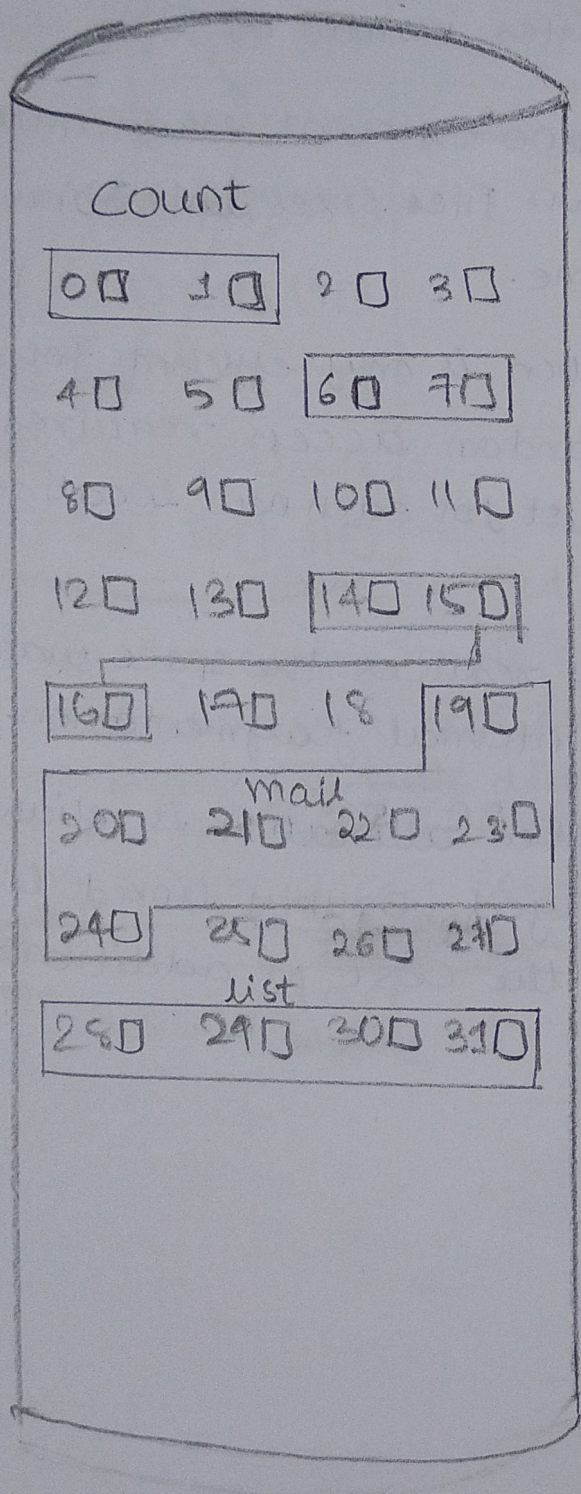 Count
0 1 2 3
4 5 6 7
8 9 10 11
12 13 14 15
16 17 18 19
mail
20 21 22 23
24 25 26 27
list
28 29 30 31